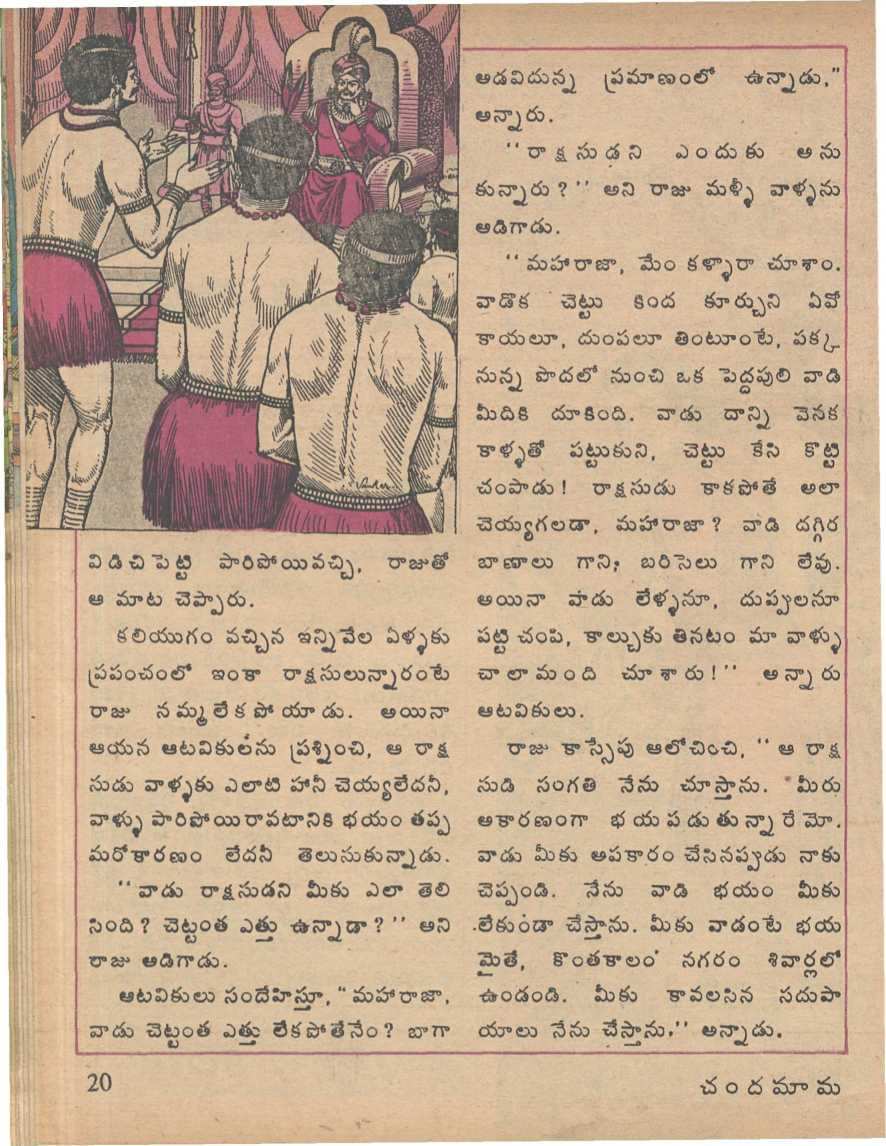 విడిచిపెట్టి పారిపోయివచ్చి, రాజుతో
ఆ మాట చెప్పారు.
కలియుగం వచ్చిన ఇన్నివేల ఏళ్ళకు
ప్రపంచంలో ఇంకా రాక్షసులున్నారంటే
రాజు నమ్మలేకపోయాడు. అయినా
ఆయన ఆటవికులను ప్రశ్నించి, ఆ రాక్ష
సుడు వాళ్ళకు ఎలాటి హానీ చెయ్యలేదనీ,
వాళ్ళు పారిపోయిరావటానికి భయం తప్ప
మరోకారణం లేదనీ తెలుసుకున్నాడు.
‘‘వాడు రాక్షసుడని మీకు ఎలా తెలి
సింది? చెట్టంత ఎత్తు ఉన్నాడా?’’ అని
రాజు అడిగాడు.
ఆటవికులు సందేహిస్తూ, “మహారాజా,
వాడు చెట్టంత ఎత్తు లేకపోతేనేం? బాగా
అడవిదున్న ప్రమాణంలో ఉన్నాడు,”
అన్నారు.
‘‘రాక్షసుడని ఎందుకు అను
కున్నారు?’’ అని రాజు మళ్ళీ వాళ్ళను
అడిగాడు.
‘‘మహారాజా, మేం కళ్ళారా చూశాం.
వాడొక చెట్టు కింద కూర్చుని ఏవో
కాయలూ, దుంపలూ తింటూంటే, పక్క
నున్న పొదలో నుంచి ఒక పెద్దపులి వాడి
మీదికి దూకింది. వాడు దాన్ని వెనక
కాళ్ళతో పట్టుకుని, చెట్టు కేసి కొట్టి
చంపాడు! రాక్షసుడు కాకపోతే అలా
చెయ్యగలడా, మహారాజా? వాడి దగ్గిర
బాణాలు గాని, బరిసెలు గాని లేవు.
అయినా వాడు లేళ్ళనూ, దుప్పులనూ
పట్టి చంపి, కాల్చుకు తినటం మా వాళ్ళు
చాలామంది చూశారు!’’ అన్నారు
ఆటవికులు.
రాజు కాస్సేపు ఆలోచించి, ‘‘ఆ రాక్ష
సుడి సంగతి నేను చూస్తాను. మీరు
అకారణంగా భయపడుతున్నారేమో.
వాడు మీకు అపకారం చేసినప్పుడు నాకు
చెప్పండి. నేను వాడి భయం మీకు
లేకుండా చేస్తాను. మీకు వాడంటే భయ
మైతే, కొంతకాలం నగరం శివార్లలో
ఉండండి. మీకు కావలసిన సదుపా
యాలు నేను చేస్తాను,’’ అన్నాడు.
20
చందమామ